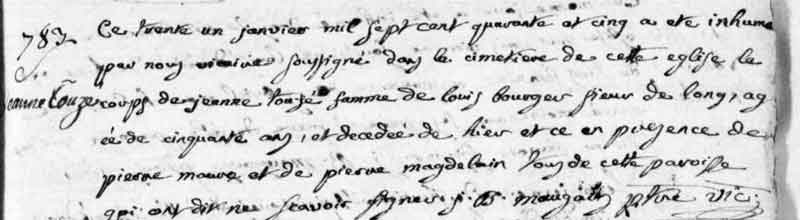 783 Ce trente un janvier mil sept cent quarante et cinq a ete inhume
par nous vicaire soussigné dans le cimetiere de cette eglise le
jeanne Touzé corps de jeanne touzé famme de louis bourges sieur de long, ag
ée de cinquante ans, et decedée de hier et ce en presence de
pierre maure et de pierre magdelain tous de cette paroisse
qui ont dit ne scavoir signer. ptre vic